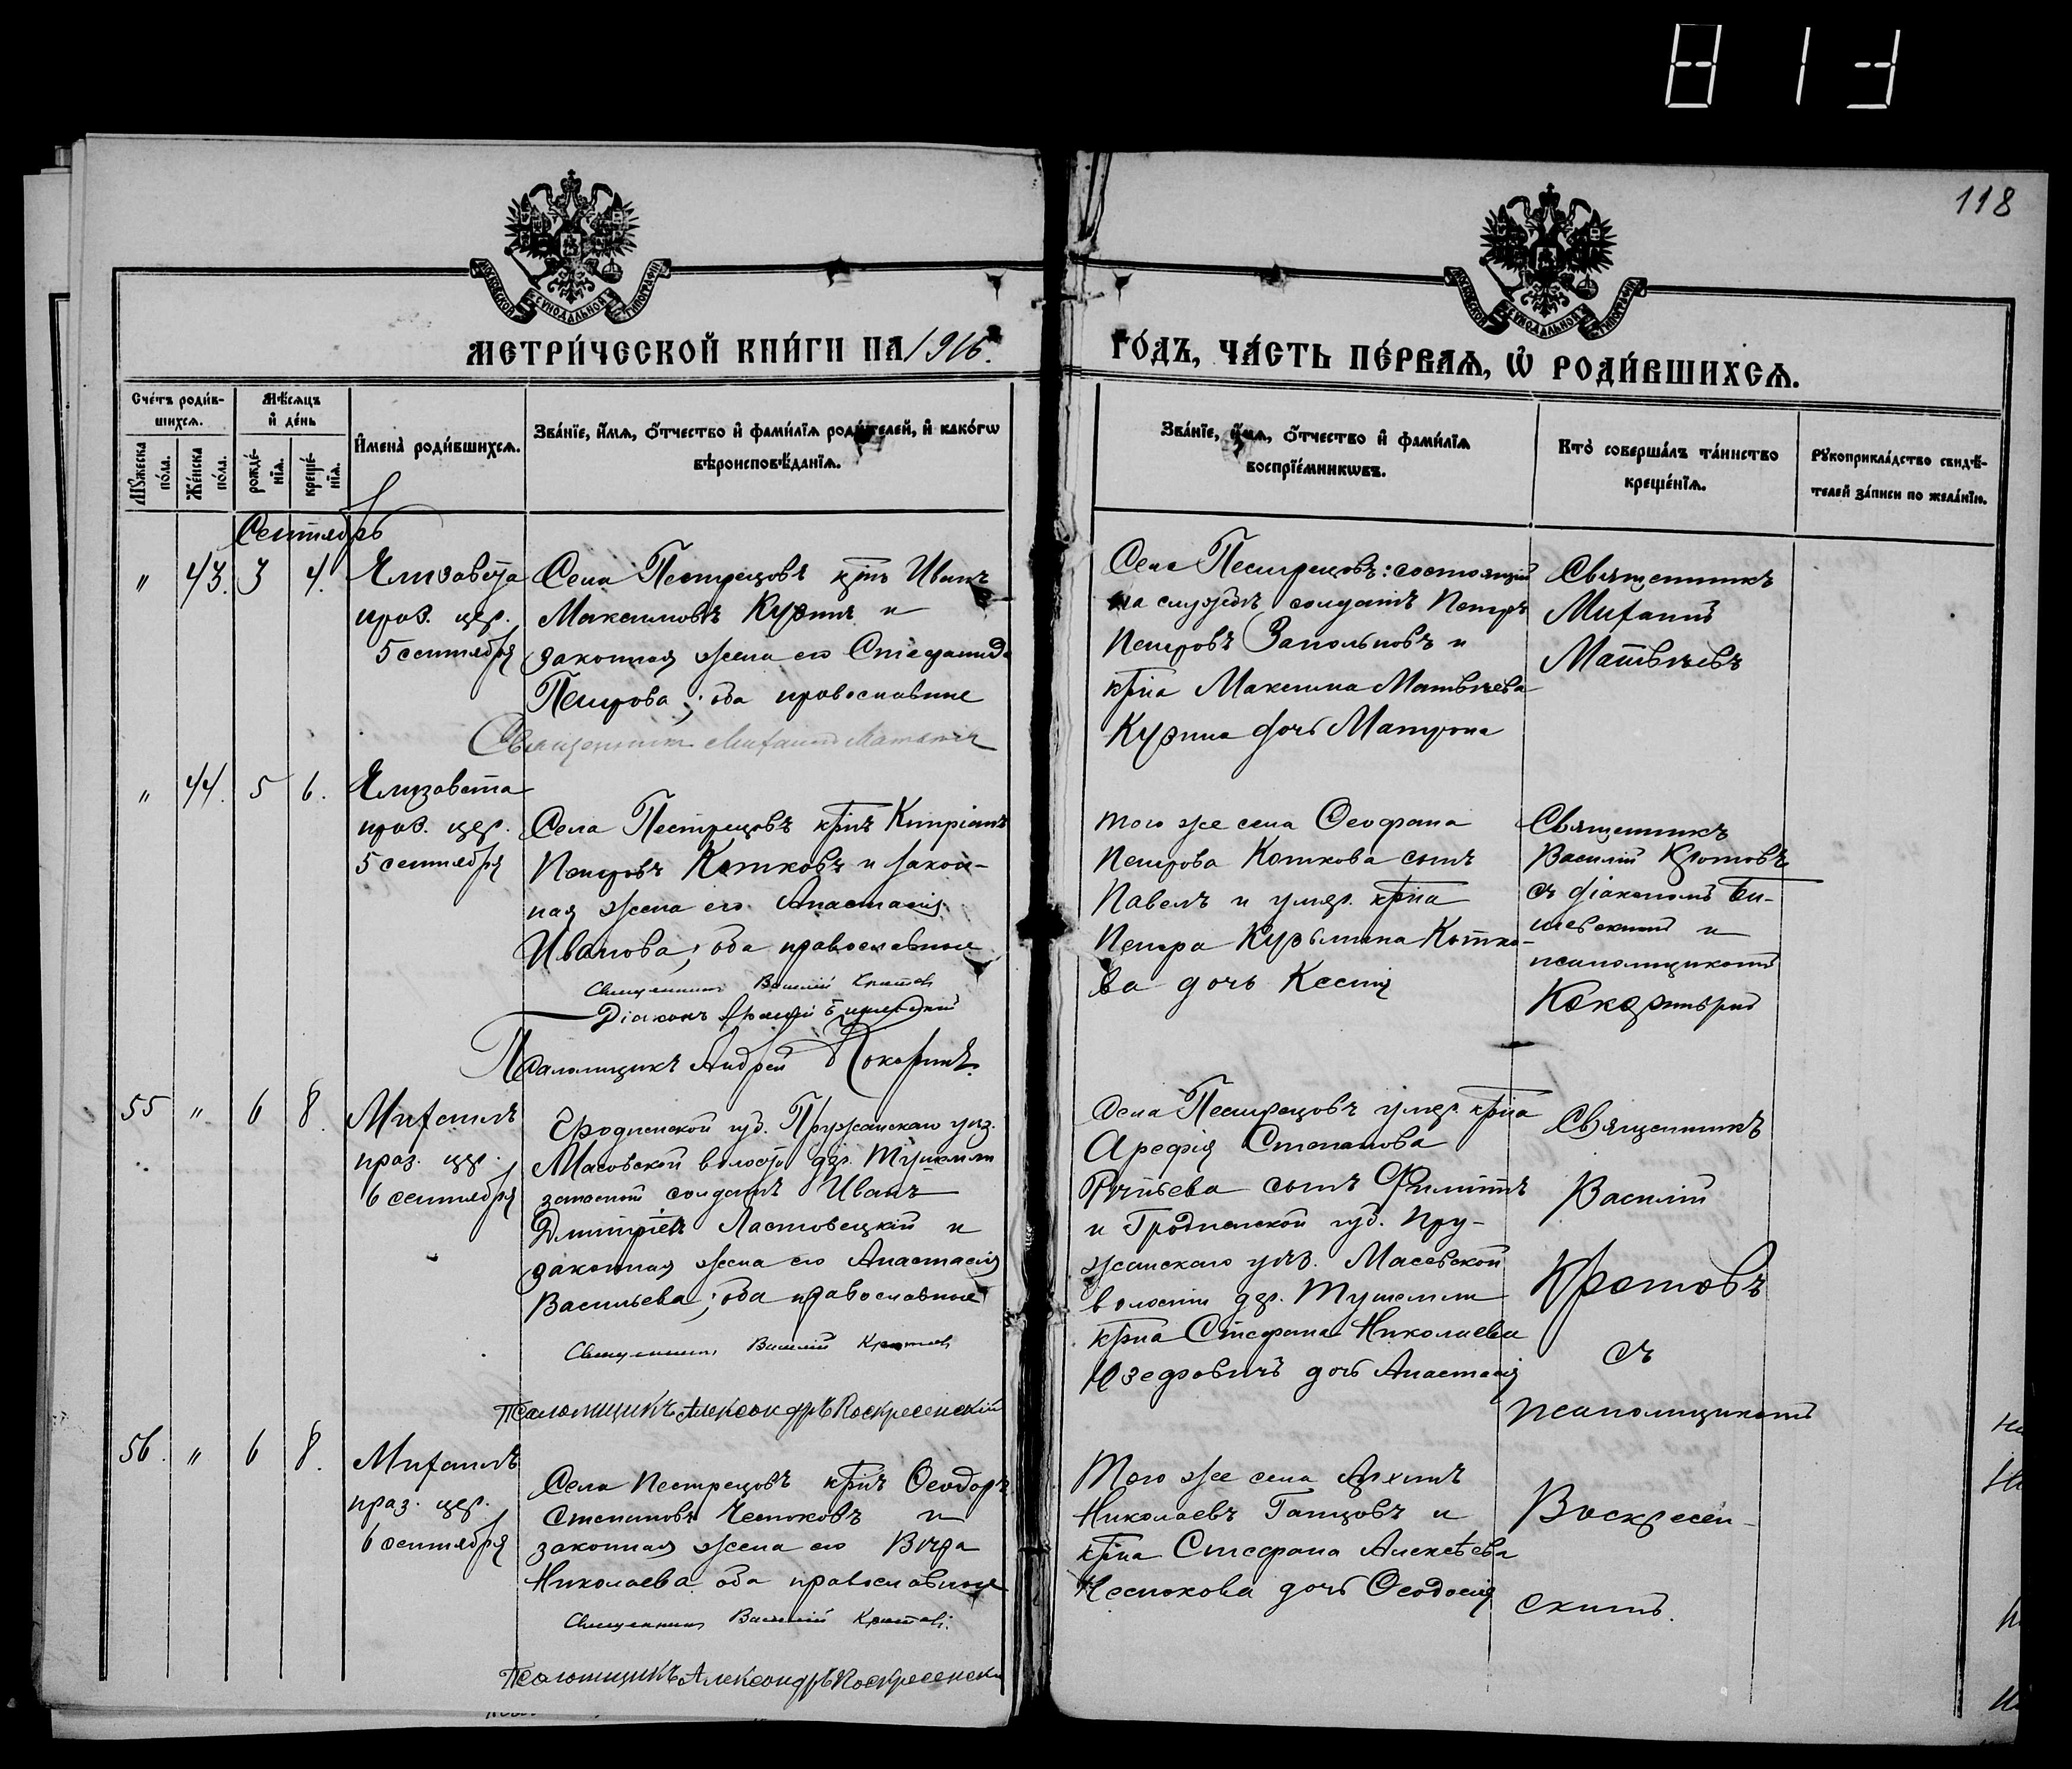 813
118
МОСКОВСКОЙ СУНОДАЛЬНОЙ ТИПОГРАФІИ
МОСКОВСКОЙ СУНОДАЛЬНОЙ ТИПОГРАФІИ
МЕТРИ́ЧЕСКОЙ КНИ́ГИ НА 1916.
ГО́ДЪ, ЧА́СТЬ ПЕ́РВАѦ, Ѡ҆ РОДИ́ВШИХСѦ.
Сче́тъ роди́в-
шихсѧ.
Мѣ́сѧцъ
и҆ де́нь
Мꙋ́жеска
по́ла.
Же́нска
по́ла.
рожде́-
нїѧ.
креще́-
нїѧ.
И҆мена̀ роди́вшихсѧ.
Зва́нїе, и҆́мѧ, ѻ҆́тчество и҆ фами́лїѧ роди́телей, и҆ како́гѡ
вѣроисповѣ́данїѧ.
Зва́нїе, и҆́мѧ, ѻ҆́тчество и҆ фами́лїѧ
воспрїе́мникѡвъ.
Кто̀ соверша́лъ та́инство
креще́нїѧ.
Рꙋкоприкла́дство свидѣ́-
телей за́писи по жела́нїю.
Сентябрь
" 43. 3 4.
Елизавета
праз. цер.
5 сентября
Села Пестрецовъ кр͞нъ Иванъ
Максимовъ Кузинъ и
законная жена его Стефанида
Петрова; оба православные
Священникъ Михаилъ
Села Пестрецовъ: состоящій
на службѣ солдатъ Петръ
Петровъ Запольновъ и
кр͞на Максима Матвѣева
Кузина дочь Матрона
Священникъ
Михаилъ
Матвѣевъ
" 44. 5 6.
Елизавета
праз. цер.
5 сентября
Села Пестрецовъ кр͞нъ Кипріанъ
Петровъ Котковъ и закон-
ная жена его Анастасія
Иванова; оба православные
Священникъ Василій Кротовъ
Діаконъ
Псаломщикъ Андрей Кокоринъ.
того же села Ѳеофана
Петрова Коткова сынъ
Павелъ и умер. кр͞на
Петра Кузьмина Котко-
ва дочь Ксенія
Священникъ
Василій Кротовъ
съ діакономъ
и
псаломщикомъ
55 " 6 8.
Михаилъ
праз. цер.
6 сентября
Гродненской губ. Пружанскаго уѣз.
Масевской волости дер. Тушемли
запасной солдатъ Иванъ
Дмитріевъ Ластовецкій и
законная жена его Анастасія
Васильева; оба православные
Священникъ Василій Кротовъ
Псаломщикъ Александръ Воскресенскій
Села Пестрецовъ умер. кр͞на
Арефія Степанова
сынъ Филиппъ
и Гродненской губ. Пру-
жанскаго уѣз. Масевской
волости дер. Тушемли
кр͞на Стефана Николаева
Юзефовичъ дочь Анастасія
Священникъ
Василій
Кротовъ
съ
псаломщикомъ
56. " 6 8.
Михаилъ
праз. цер.
6 сентября
Села Пестрецовъ кр͞нъ Ѳеодоръ
Степановъ Чесноковъ и
законная жена его Вѣра
Николаева оба православные
Священникъ Василій Кротовъ.
Псаломщикъ Александръ Воскресенскі
Того же села Архипъ
Николаевъ Ганцовъ и
кр͞на Стефана Алексѣева
Чеснокова дочь Ѳеодосія
Воскресен-
скимъ.